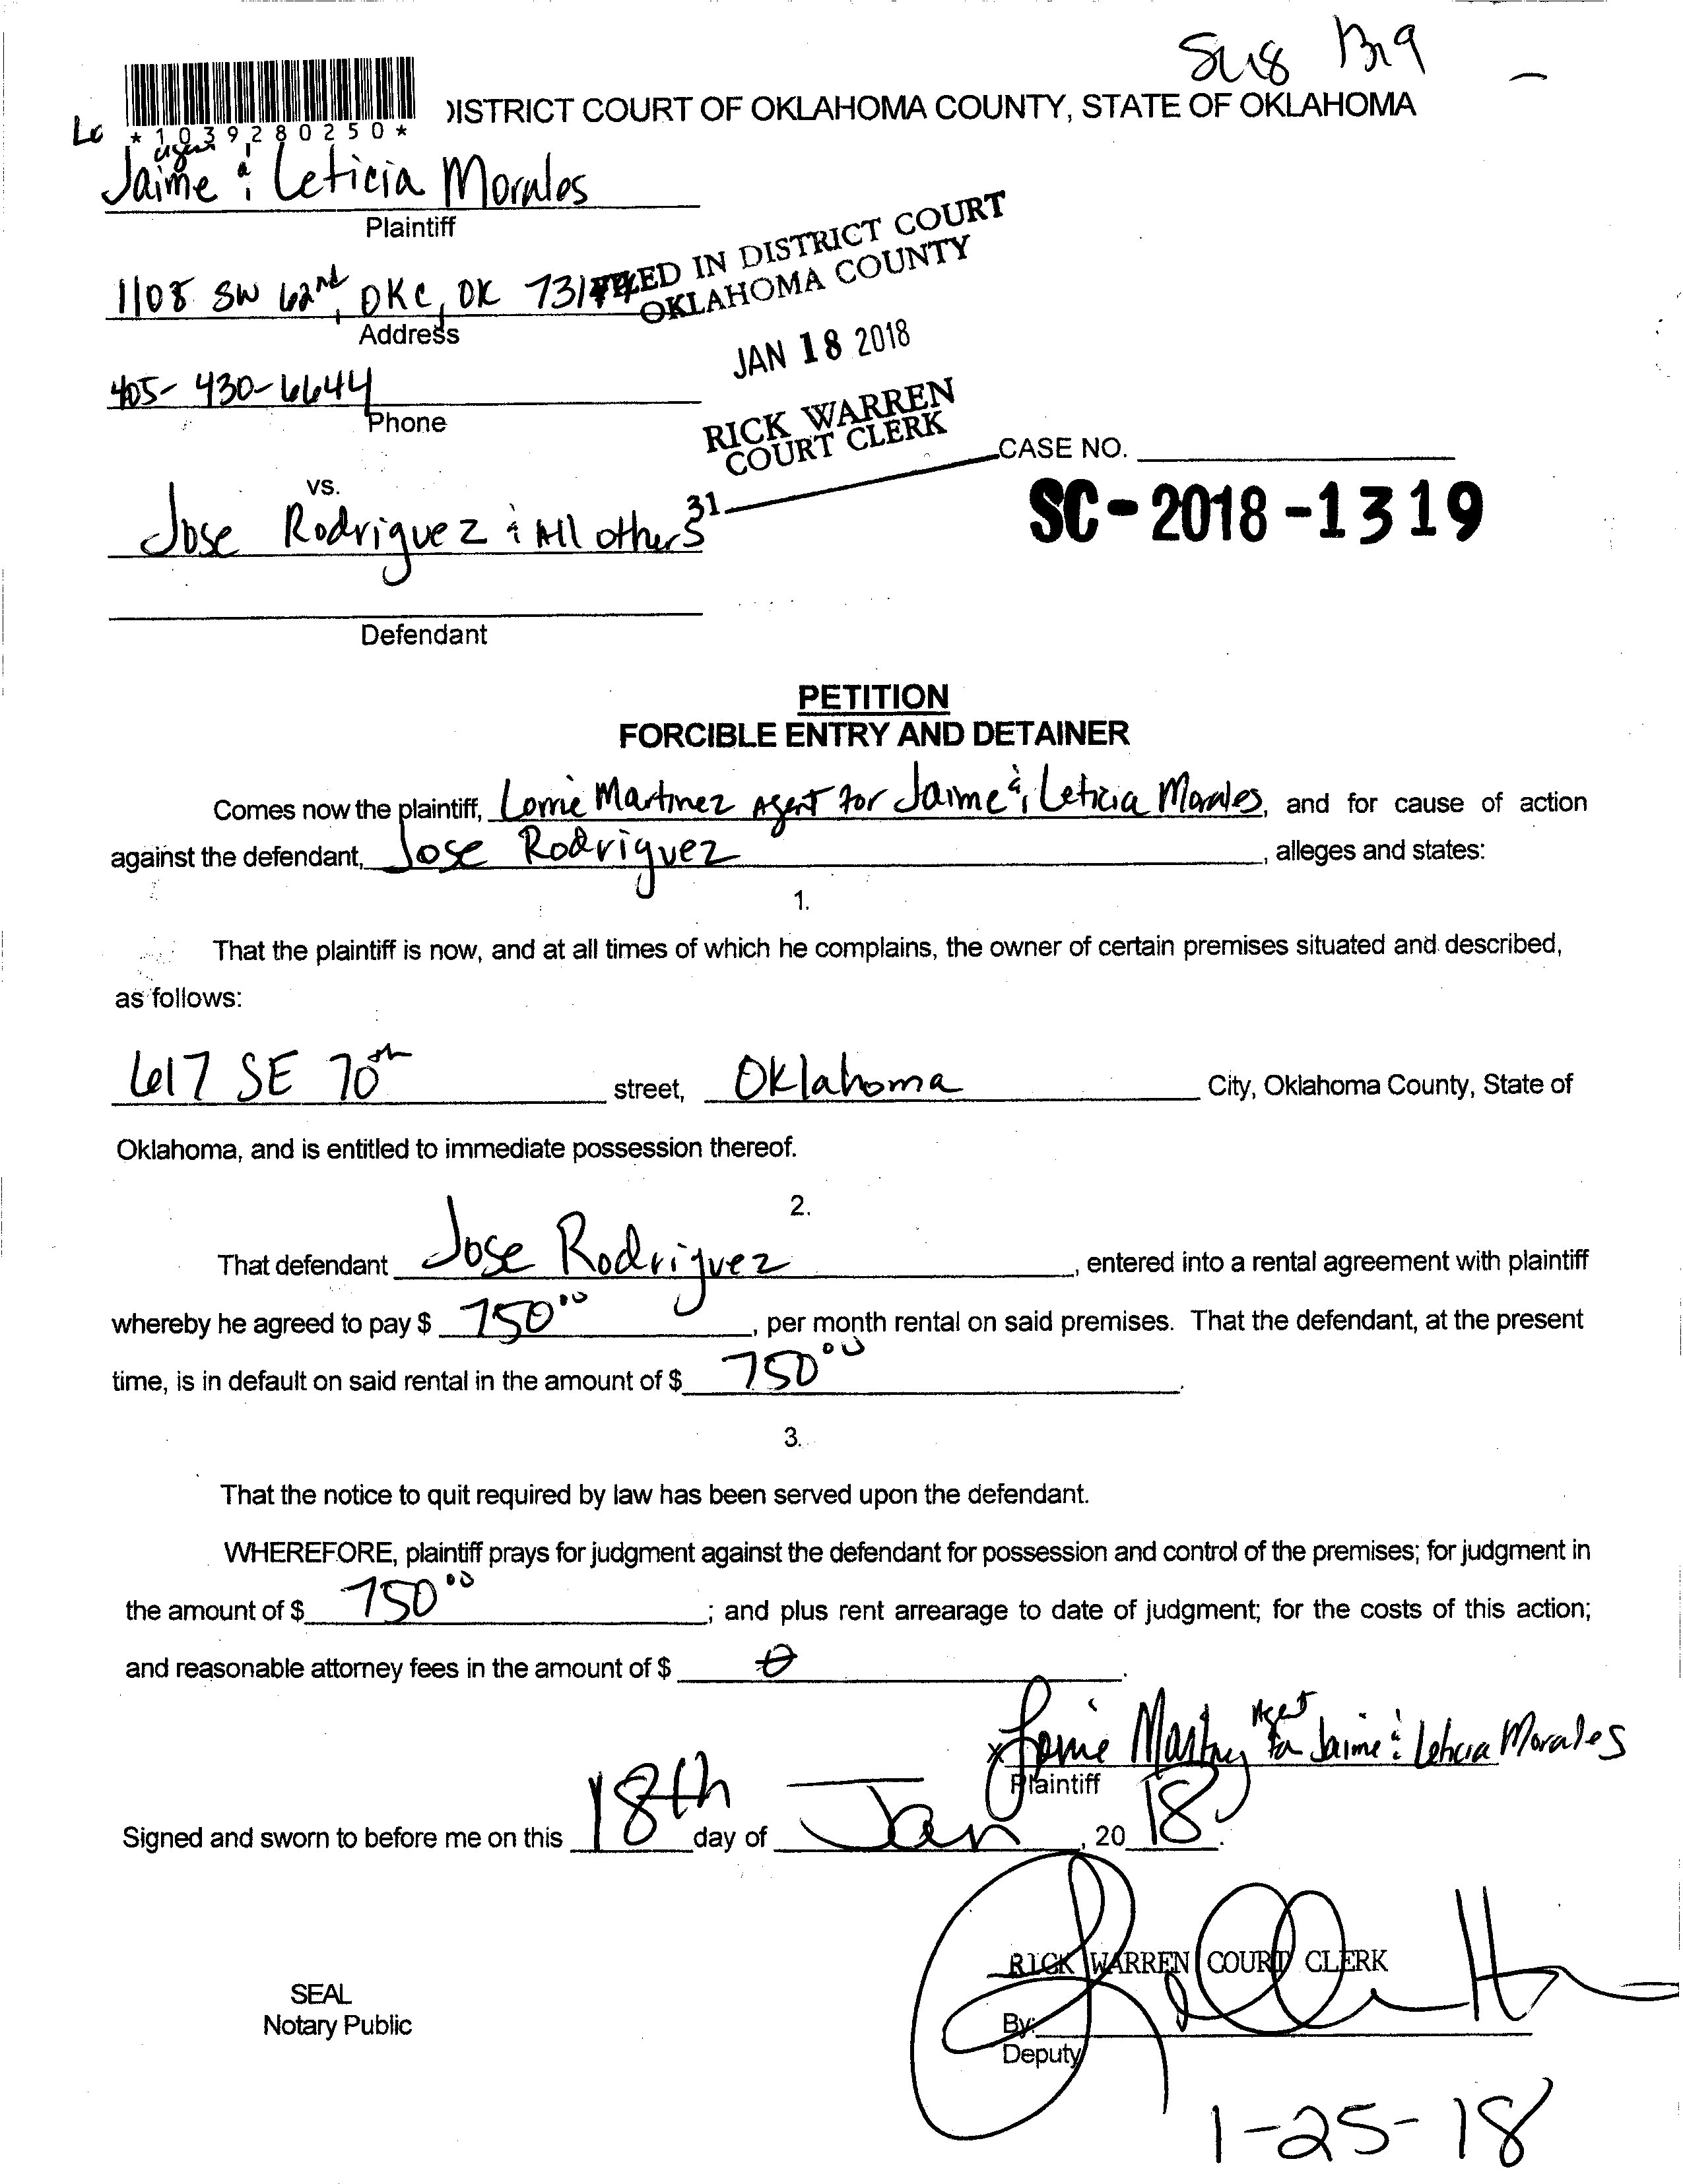 DISTRICT COURT OF OKLAHOMA COUNTY, STATE OF OKLAHOMA
*1039280250*
agent
Jaime & Leticia Morales
Plaintiff
1108 SW 62nd, OKC, OK
Address
405-430-6644
Phone
FILED IN DISTRICT COURT
OKLAHOMA COUNTY
JAN 18 2018
RICK WARREN
COURT CLERK
31
CASE NO.
SC-2018-1319
vs.
Jose Rodriguez & All others
Defendant
PETITION
FORCIBLE ENTRY AND DETAINER
Comes now the plaintiff, Lorrie Martinez Agent for Jaime & Leticia Morales, and for cause of action
against the defendant, Jose Rodriguez, alleges and states:
1.
That the plaintiff is now, and at all times of which he complains, the owner of certain premises situated and described,
as follows:
617 SE 70th street, Oklahoma City, Oklahoma County, State of
Oklahoma, and is entitled to immediate possession thereof.
2.
That defendant Jose Rodriguez, entered into a rental agreement with plaintiff
whereby he agreed to pay $ 750.00, per month rental on said premises. That the defendant, at the present
time, is in default on said rental in the amount of $ 750.00.
3.
That the notice to quit required by law has been served upon the defendant.
WHEREFORE, plaintiff prays for judgment against the defendant for possession and control of the premises; for judgment in
the amount of $ 750.00; and plus rent arrearage to date of judgment; for the costs of this action;
and reasonable attorney fees in the amount of $ 0.
x Lorrie Martinez Agent for Jaime & Leticia Morales
Plaintiff
Signed and sworn to before me on this 18th day of Jan, 2018.
RICK WARREN COURT CLERK
SEAL
Notary Public
By:
Deputy
1-25-18